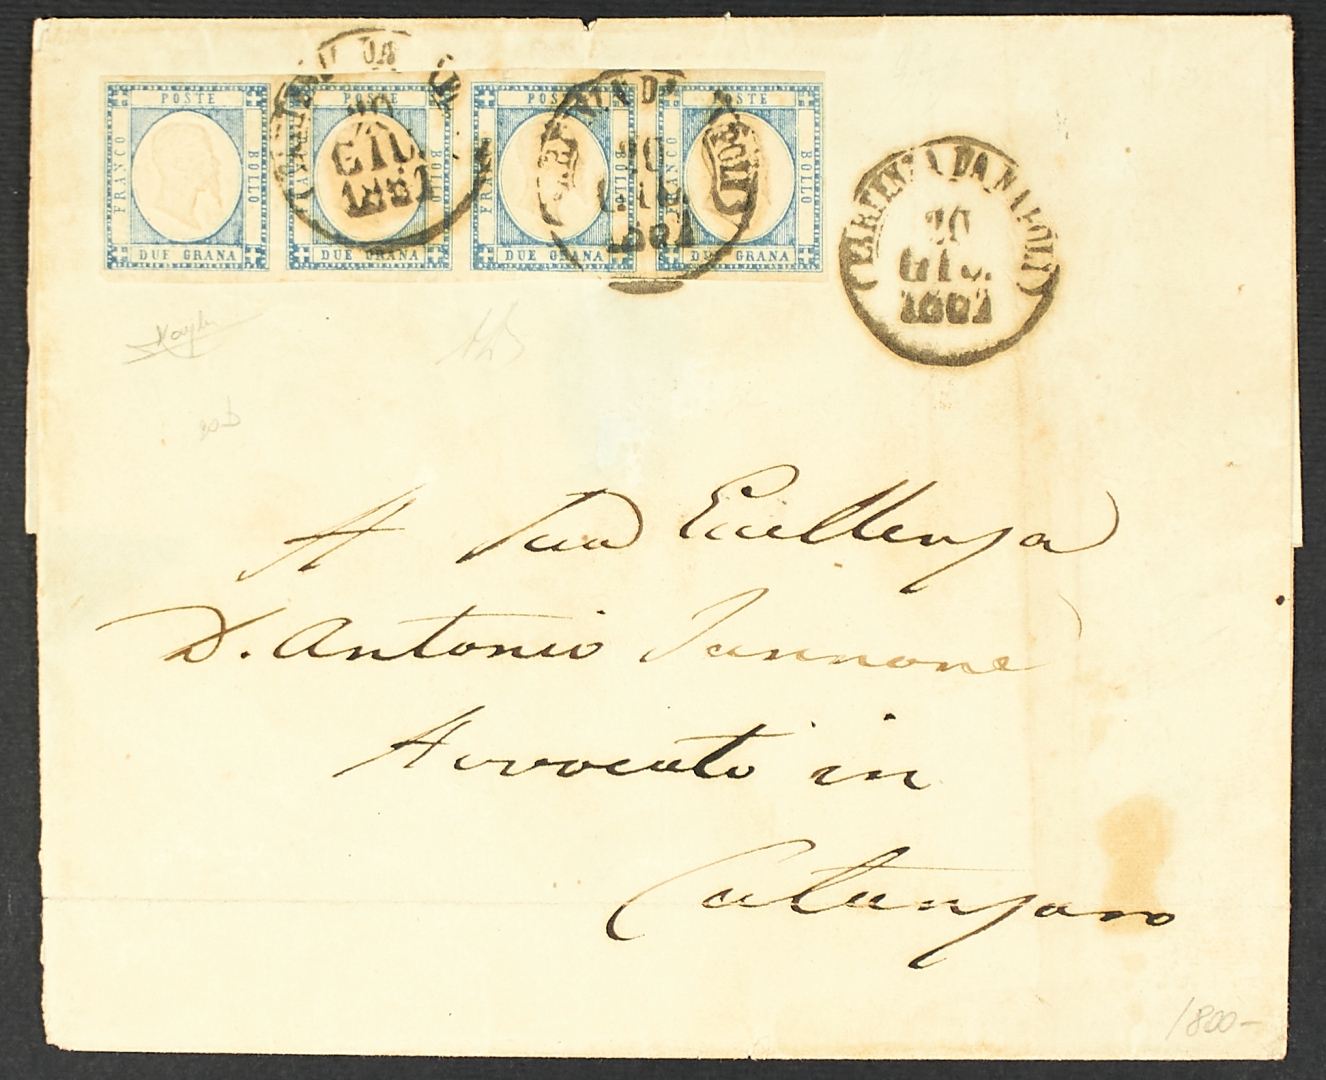 POSTE POSTE POSTE POSTE
FRANCO BOLLO FRANCO BOLLO FRANCO BOLLO FRANCO BOLLO
DUE GRANA DUE GRANA DUE GRANA DUE GRANA
20
GIU.
1861
20
GIU.
1861
(PARTENZA DA NAPOLI)
20
GIU.
1861
A Sua Eccellenza
D. Antonio Jannone
Avvocato in
Catanzaro
1800-